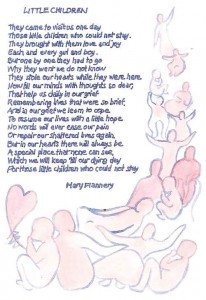 LITTLE CHILDREN
They came to visit us one day
Those little children who could not stay.
They brought with them love and joy
Each and every girl and boy.
But one by one they had to go
Why they went we do not know
They stole our hearts while they were here.
Now fill our minds with thoughts so dear,
That help us daily in our grief
Remembering lives that were so brief,
And in our grief we learn to cope
To resume our lives with a little hope.
No words will ever ease our pain
Or repair our shattered lives again,
But in our hearts there will always be
A special place that none can see,
Which we will keep till our dying day
For those little children who could not stay
Mary Flannery